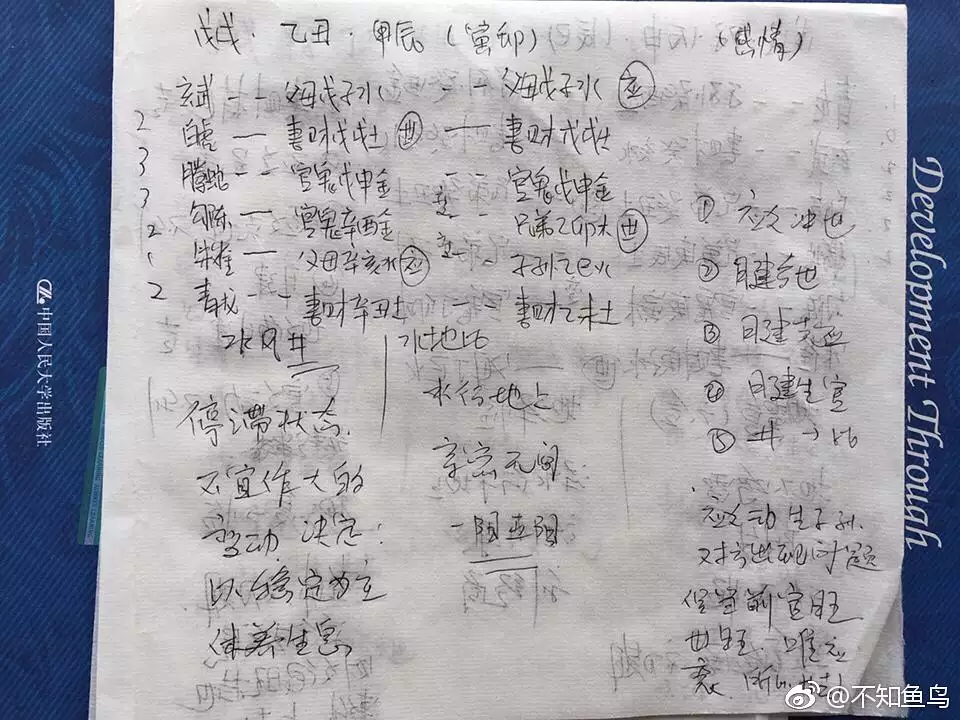 戊戌·乙丑·甲辰(寅卯) (感情)
玄武 -- 父母戊子水 -- 父母戊子水 应
2 白虎 — 妻财戊戌土 世 — 妻财戊戌土
3 腾蛇 -- 官鬼戊申金 -- 官鬼戊申金
3 勾陈 — 官鬼辛酉金 -- 兄弟乙卯木 世
2 朱雀 — 父母辛亥水 应 -- 子孙乙巳火
2 青龙 -- 妻财辛丑土 妻财乙未土
水风井
水地比
停滞状态
不宜作大的
变动 决定:
以稳定为主
休养生息
水行地上
亲密无间
① 应爻冲世
② 日建合世
③ 日建克应
④ 日建生官
⑤ 井→比
应爻动生子孙.
对方出现问题
官旺
世旺. 唯应
衰.
中国人民大学出版社
Development Through
@不知鱼鸟